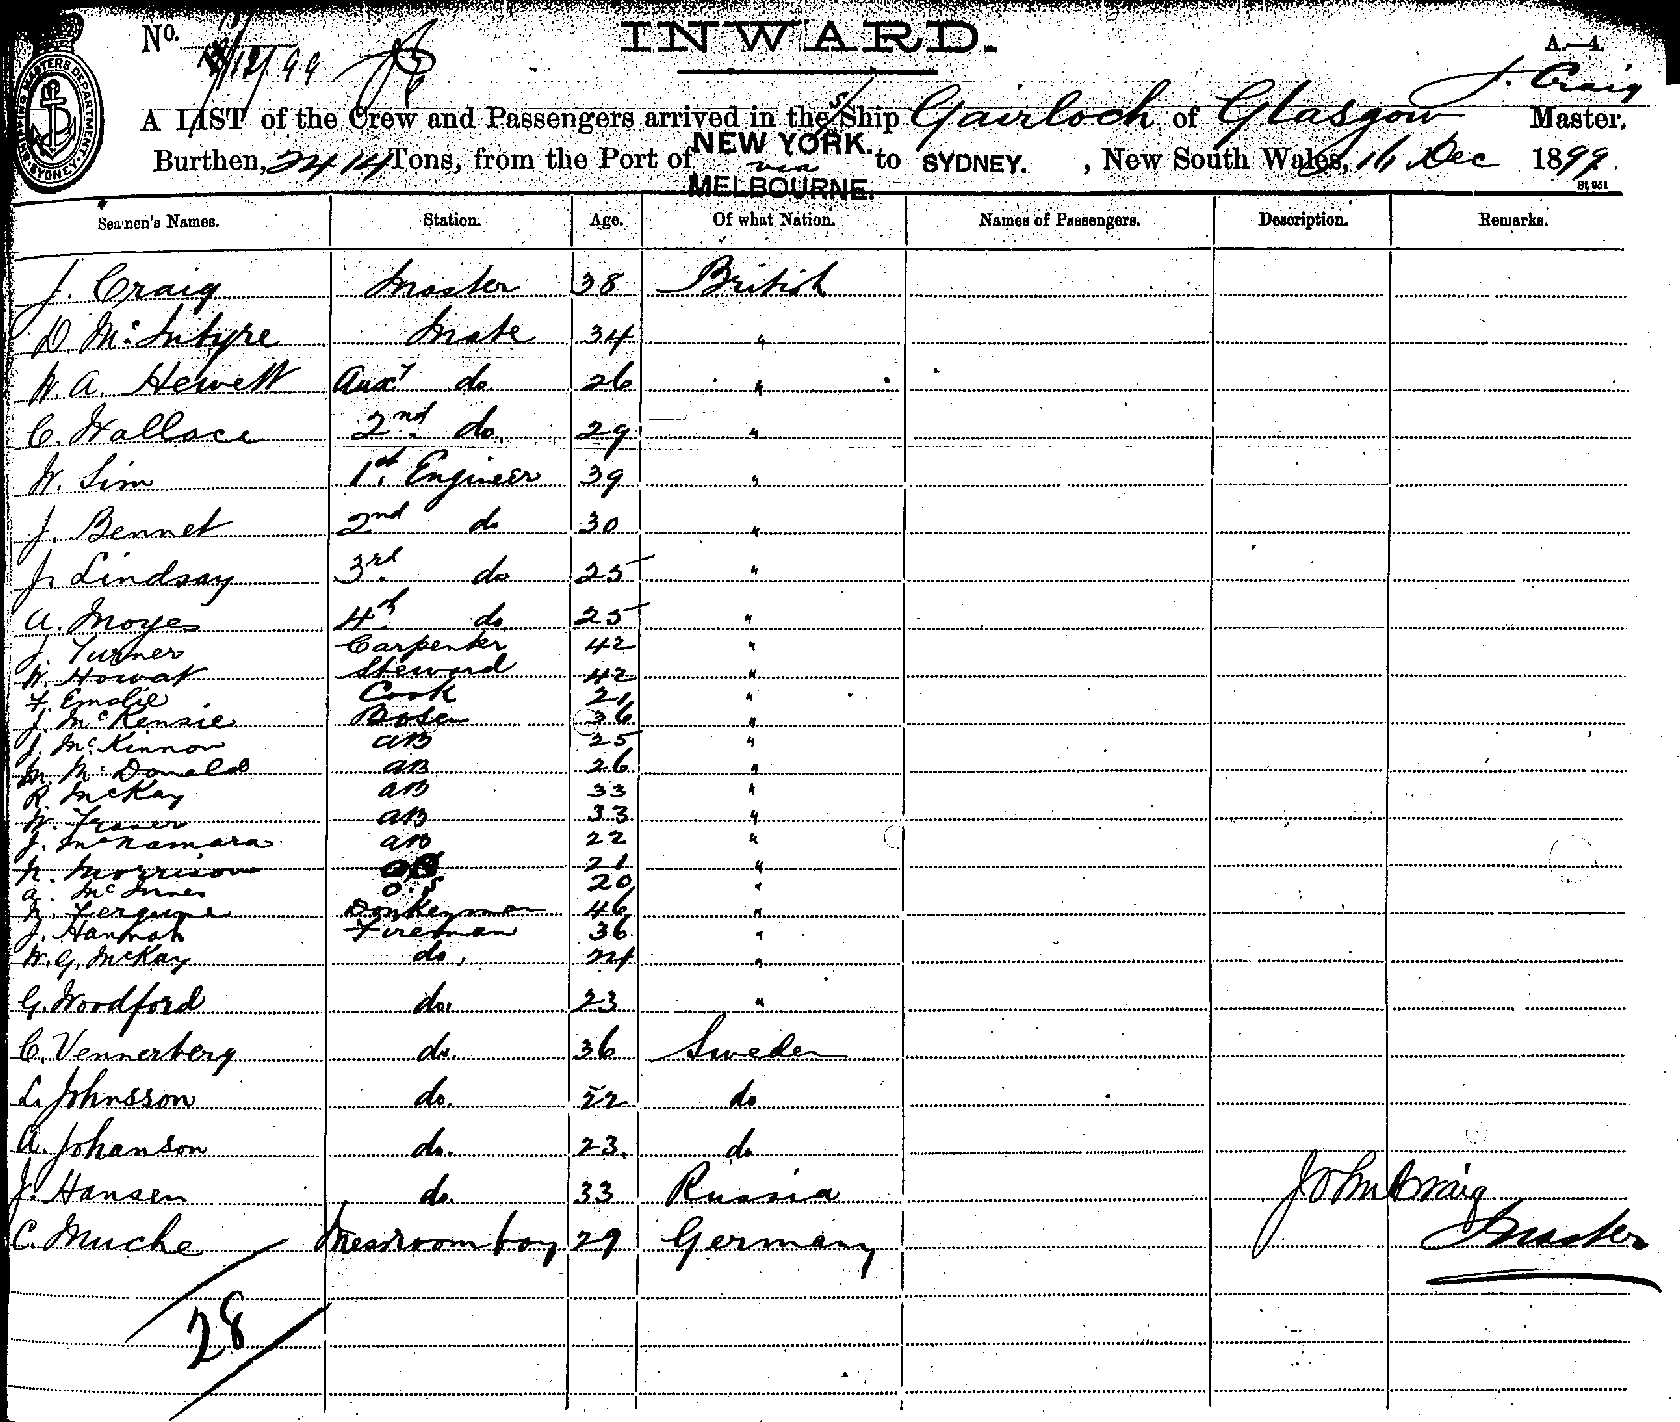 No. 18/12/99
INWARD.
A.—4.
J. Craig
A LIST of the Crew and Passengers arrived in the S/Ship Gairloch of Glasgow Master,
Burthen, 2414 Tons, from the Port of NEW YORK. via MELBOURNE. to SYDNEY. , New South Wales, 16 Dec 1899.
Seamen's Names. Station. Age. Of what Nation. Names of Passengers. Description. Remarks.
J. Craig Master 38 British
D. McIntyre Mate 34 "
W. A. Hewett Auxy do 26 "
C. Wallace 2nd do. 29 "
W. Sim 1st Engineer 39 "
J. Bennet 2nd do 30 "
J. Lindsay 3rd do 25 "
A. Moyes 4th do 25 "
J. Turner Carpenter 42 "
W. Howat Steward 42 "
F. Emslie Cook 21 "
J. McKensie Bosen 36 "
J. McKinnon AB 25 "
M. McDonald AB 26 "
R. McKay AB 33 "
W. Fraser AB 33 "
J. McNamara AB 22 "
N. Morrison 21 "
A. McInnes O.S 20 "
Donkeyman 46 "
J. Hannah Fireman 36 "
W. G. McKay do. 24 "
G. Woodford do. 23 "
C. Vennerberg do. 36 Sweden
L. Johnsson do. 22 do
A. Johanson do. 23. do
J. Hansen do. 33 Russia
C. Muche Messroom boy 29 Germany
John Craig
Master
28